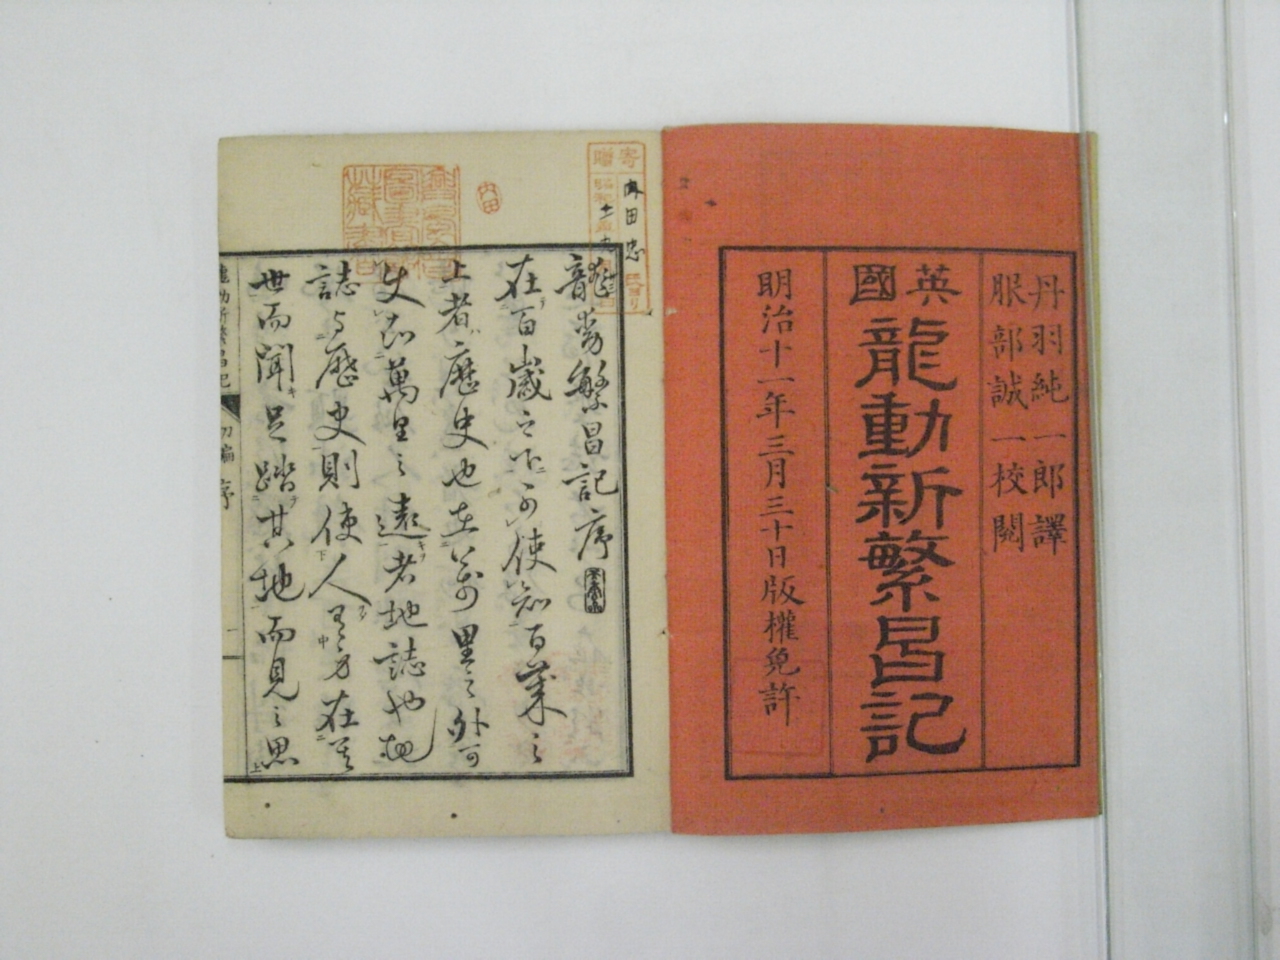 丹羽純一郎譯
服部誠一校閲
英國
龍動新繁昌記
明治十一年三月三十日版權免許
寄贈
内田忠
内田
龍動繁昌記序
在百歳之下可使知百葉之
上者歴史也在萬里之外可
使知萬里之遠者地誌也地
誌与歴史則使人不身在其
世而聞足踏其地而見之思